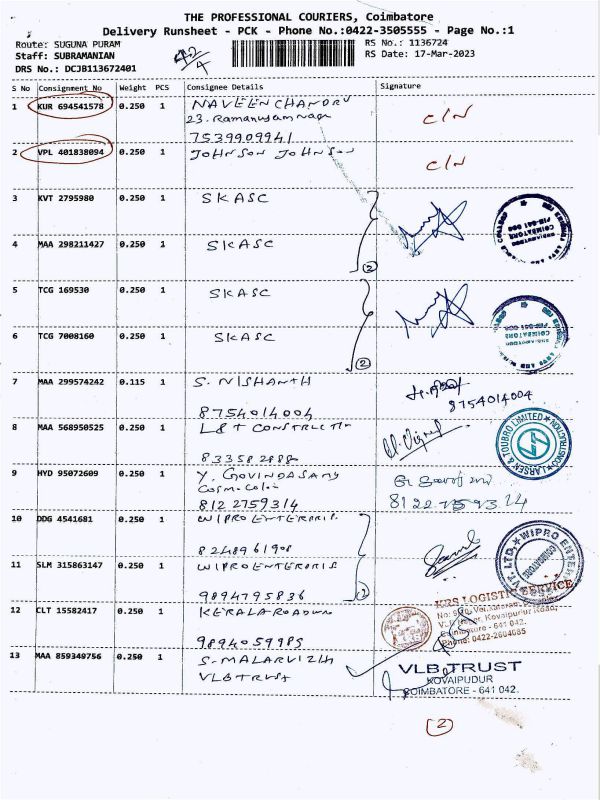 THE PROFESSIONAL COURIERS, Coimbatore
Delivery Runsheet - PCK - Phone No.:0422-3505555 - Page No.:1
Route: SUGUNA PURAM
Staff: SUBRAMANIAN
DRS No.: DCJB113672401
RS No.: 1136724
RS Date: 17-Mar-2023
S No Consignment No Weight PCS Consignee Details Signature
1 KUR 694541578 0.250 1 NAVEEN CHANDRU
23. Ramanuyamnagar
7539909941
C/N
2 VPL 401838094 0.250 1 JOHNSON JOHNSON
C/N
3 KVT 2795980 0.250 1 SKASC
4 MAA 298211427 0.250 1 SKASC
②
5 TCG 169530 0.250 1 SKASC
6 TCG 7008160 0.250 1 SKASC
②
7 MAA 299574242 0.115 1 S. NISHANTH
8754014004
8754014004
8 MAA 568950525 0.250 1 L&T CONSTRUCTN
LARSEN & TOUBRO LIMITED
CONSTRUCTION
9 HYD 95072609 0.250 1 Y. GOVINDASAMY
8122759314
10 DDG 4541681 0.250 1 WIPRO ENTERPRIS
8248961908
11 SLM 315863147 0.250 1 WIPRO ENTERPRIS
9894795836
②
PVT. LTD. ★ WIPRO ENTER
COIMBATORE
12 CLT 15582417 0.250 1 KERALA ROADWAY
9894059985
KRS LOGISTIC SERVICE
Kovaipudur Road,
Coimbatore - 641 042.
Phone: 0422-2604085
13 MAA 859349756 0.250 1 S. MALARVIZHI
VLB TRUST
VLB TRUST
KOVAIPUDUR
COIMBATORE - 641 042.
②